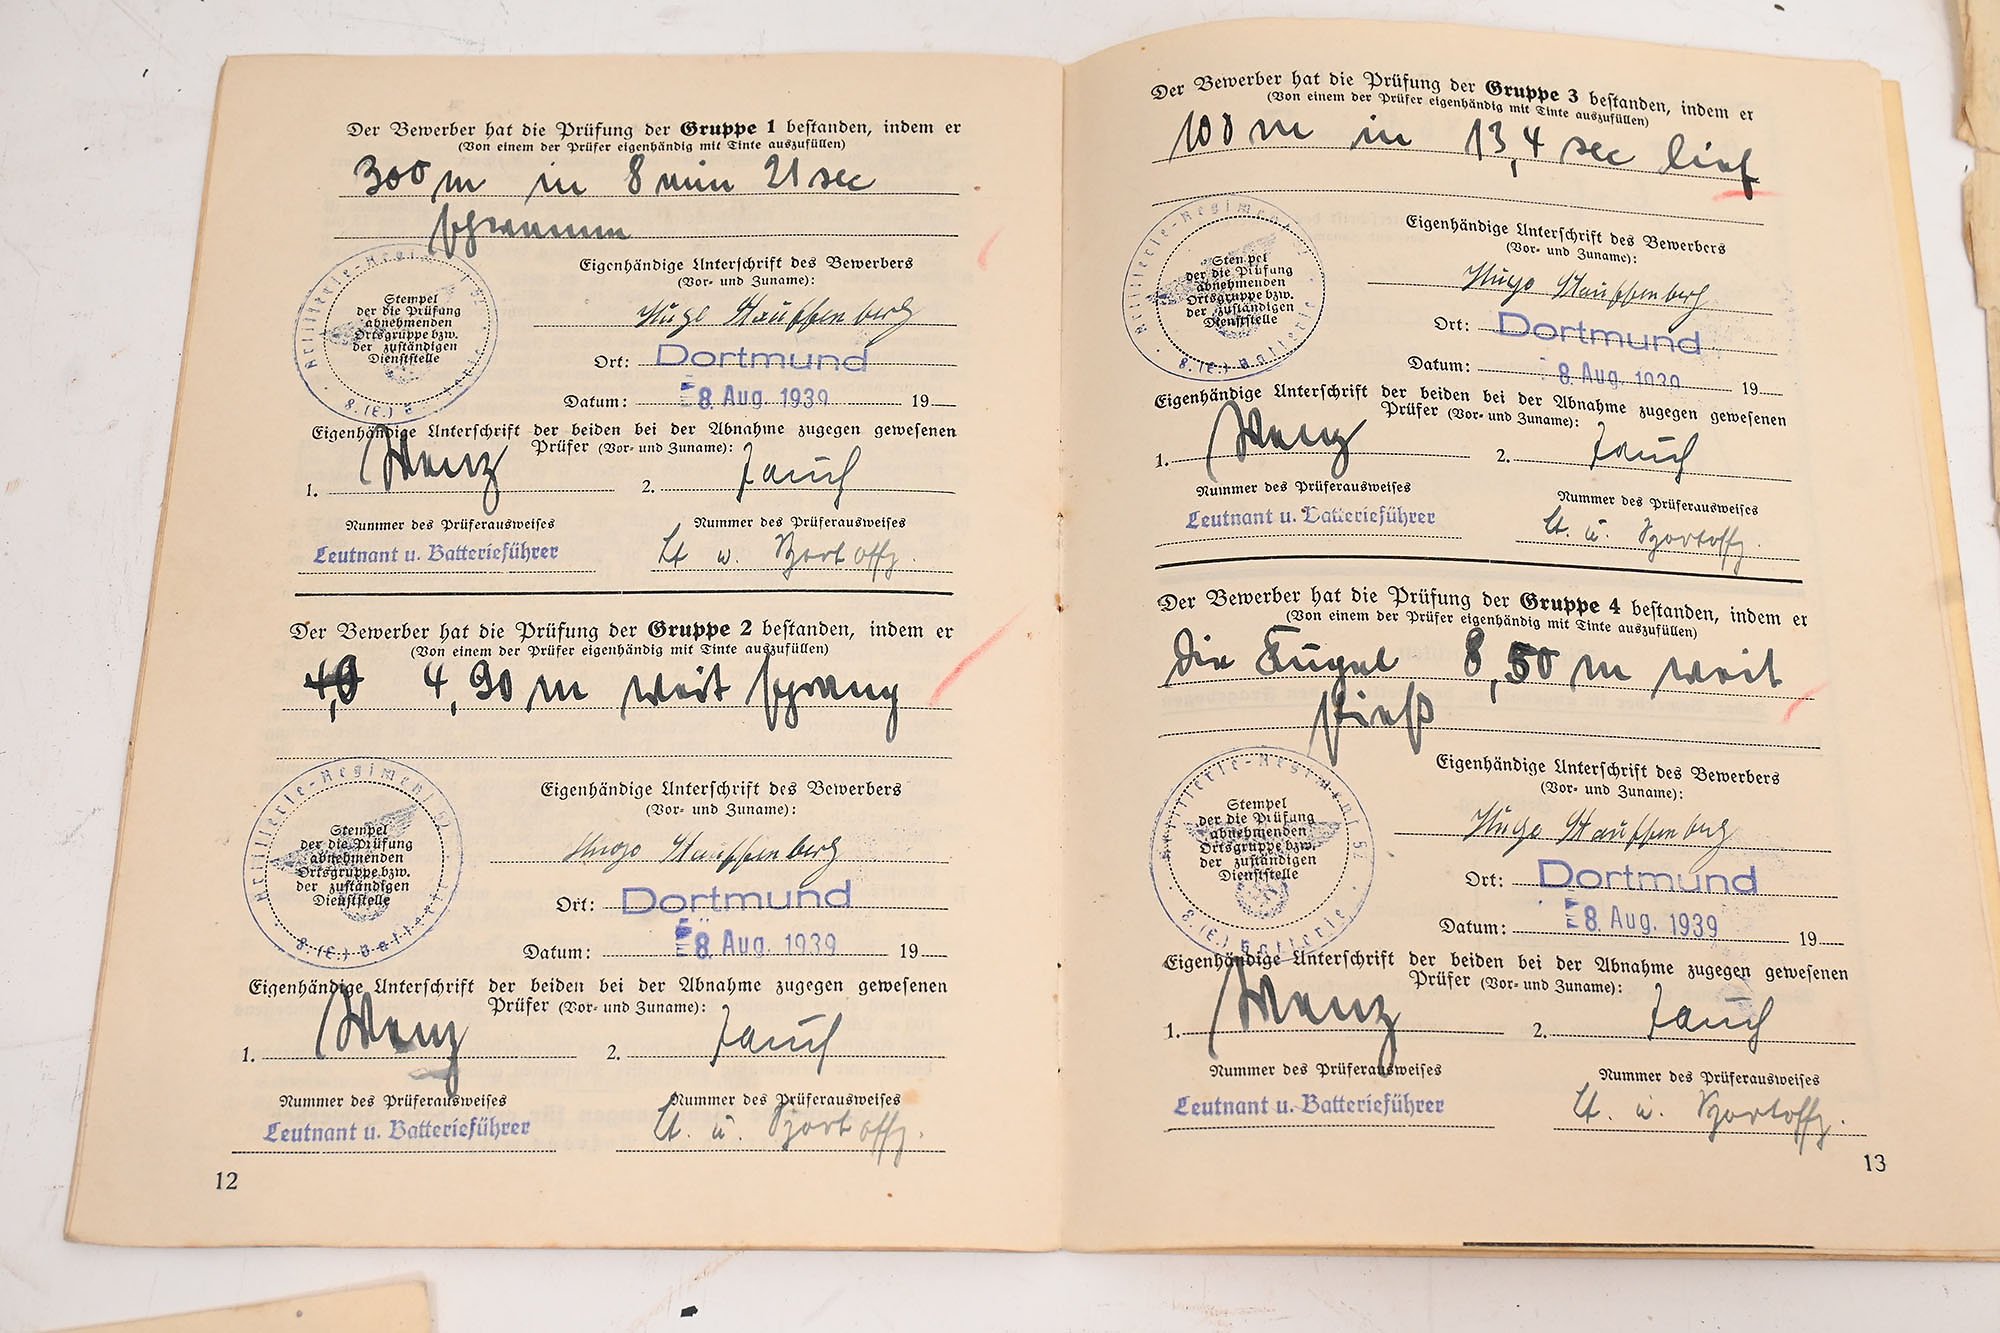 Der Bewerber hat die Prüfung der Gruppe 1 bestanden, indem er
(Von einem der Prüfer eigenhändig mit Tinte auszufüllen)
300 m in 8 min 21 sec
schwamm
Artillerie-Regiment
8. (E.) Batterie
Stempel
der die Prüfung
abnehmenden
Ortsgruppe bzw.
der zuständigen
Dienststelle
Eigenhändige Unterschrift des Bewerbers
(Vor- und Zuname):
Hugo Stauffenberg
Ort: Dortmund
Datum: 8. Aug. 1939 19
Eigenhändige Unterschrift der beiden bei der Abnahme zugegen gewesenen
Prüfer (Vor- und Zuname):
1. Wenz 2. Jauch
Nummer des Prüferausweises Nummer des Prüferausweises
Leutnant u. Batterieführer Lt u. Sportoffz.
Der Bewerber hat die Prüfung der Gruppe 2 bestanden, indem er
(Von einem der Prüfer eigenhändig mit Tinte auszufüllen)
4,90 m weit sprang
Artillerie-Regiment
8. (E.) Batterie
Stempel
der die Prüfung
abnehmenden
Ortsgruppe bzw.
der zuständigen
Dienststelle
Eigenhändige Unterschrift des Bewerbers
(Vor- und Zuname):
Hugo Stauffenberg
Ort: Dortmund
Datum: 8. Aug. 1939 19
Eigenhändige Unterschrift der beiden bei der Abnahme zugegen gewesenen
Prüfer (Vor- und Zuname):
1. Wenz 2. Jauch
Nummer des Prüferausweises Nummer des Prüferausweises
Leutnant u. Batterieführer Lt. u. Sportoffz.
12
Der Bewerber hat die Prüfung der Gruppe 3 bestanden, indem er
(Von einem der Prüfer eigenhändig mit Tinte auszufüllen)
100 m in 13,4 sec lief
Artillerie-Regiment
8. (E.) Batterie
Stempel
der die Prüfung
abnehmenden
Ortsgruppe bzw.
der zuständigen
Dienststelle
Eigenhändige Unterschrift des Bewerbers
(Vor- und Zuname):
Hugo Stauffenberg
Ort: Dortmund
Datum: 8. Aug. 1939 19
Eigenhändige Unterschrift der beiden bei der Abnahme zugegen gewesenen
Prüfer (Vor- und Zuname):
1. Wenz 2. Jauch
Nummer des Prüferausweises Nummer des Prüferausweises
Leutnant u. Batterieführer Lt. u. Sportoffz.
Der Bewerber hat die Prüfung der Gruppe 4 bestanden, indem er
(Von einem der Prüfer eigenhändig mit Tinte auszufüllen)
die Kugel 8,50 m weit
stieß
Artillerie-Regiment
8. (E.) Batterie
Stempel
der die Prüfung
abnehmenden
Ortsgruppe bzw.
der zuständigen
Dienststelle
Eigenhändige Unterschrift des Bewerbers
(Vor- und Zuname):
Hugo Stauffenberg
Ort: Dortmund
Datum: 8. Aug. 1939 19
Eigenhändige Unterschrift der beiden bei der Abnahme zugegen gewesenen
Prüfer (Vor- und Zuname):
1. Wenz 2. Jauch
Nummer des Prüferausweises Nummer des Prüferausweises
Leutnant u. Batterieführer Lt. u. Sportoffz.
13